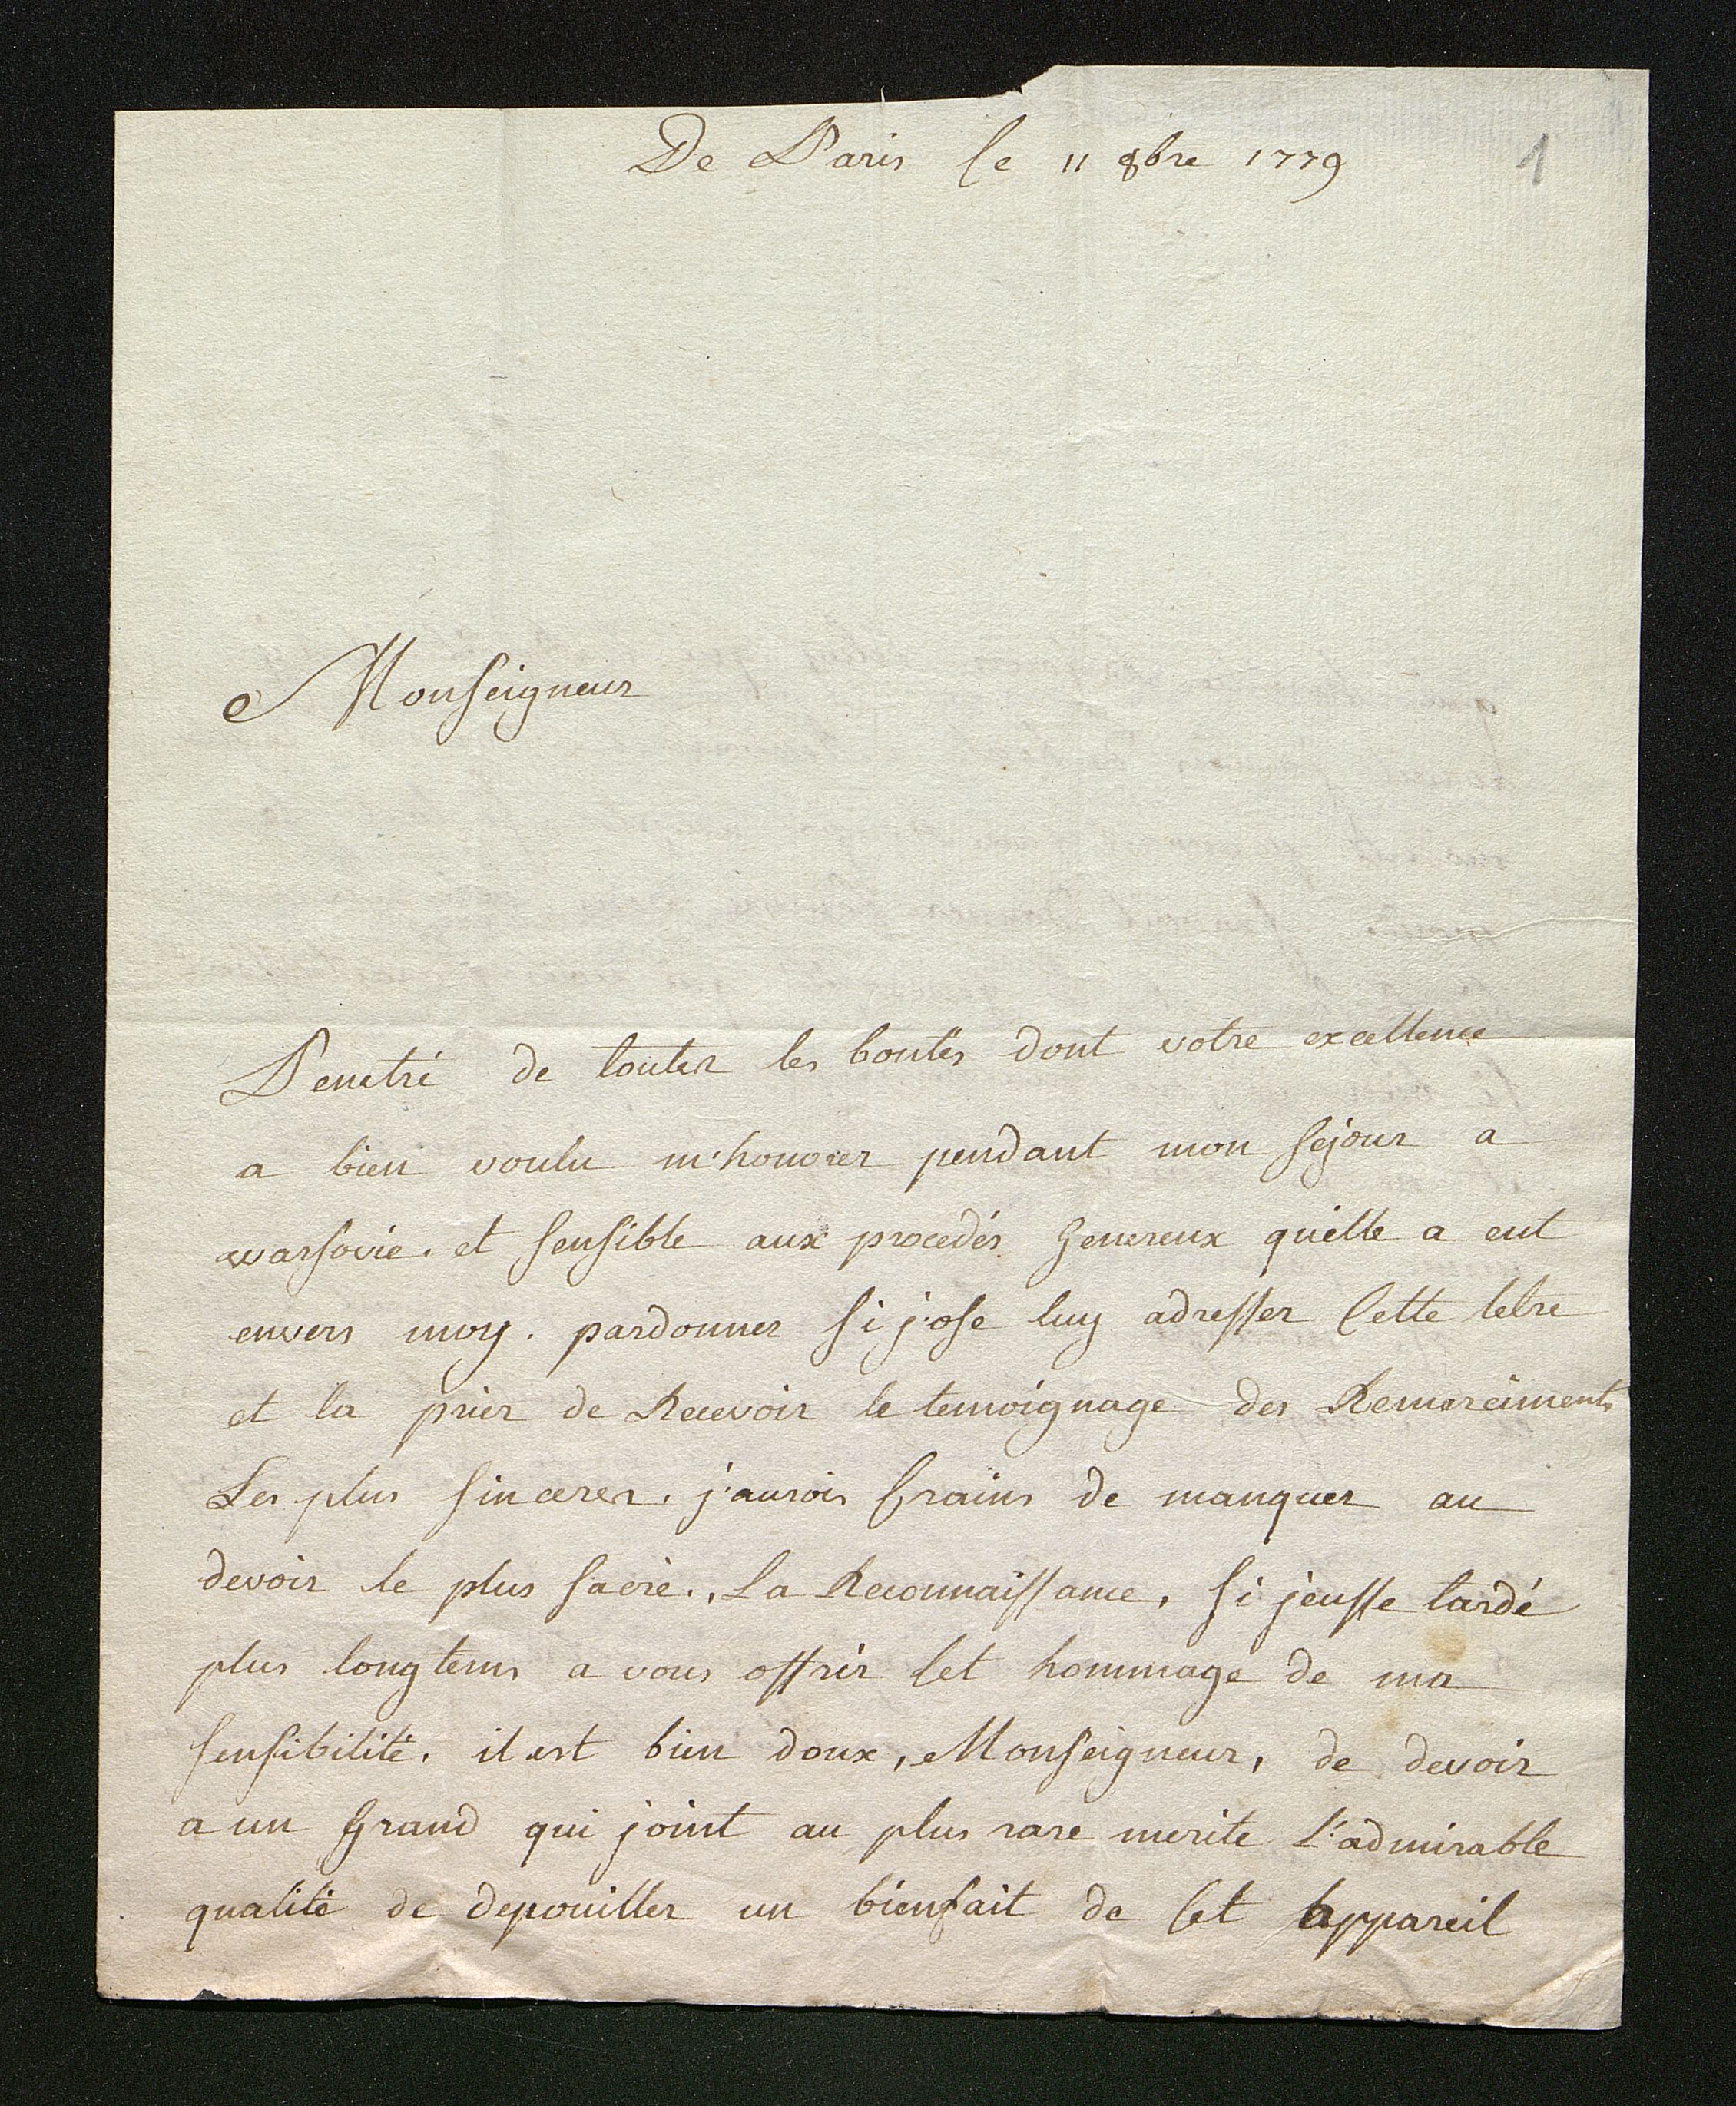 De Paris le 11 8bre 1779
1
Monseigneur
Penetré de toutes les bontés dont votre excellence
a bien voulu m'honorer pendant mon séjour a
warsovie. et sensible aux procedés Genereux qu'elle a eut
envers moy. pardonner si j'ose luy adresser Cette letre
et la prier de Recevoir le temoignage des Remerciments
Les plus sinceres. j'aurois Crains de manquer au
devoir le plus sacré., La Reconnaissance, si j'eusse tardé
plus longtems a vous offrir Cet hommage de ma
sensibilité. il est bien doux, Monseigneur, de devoir
a un Grand qui joint au plus rare merite L'admirable
qualité de depouiller un bienfait de Cet appareil